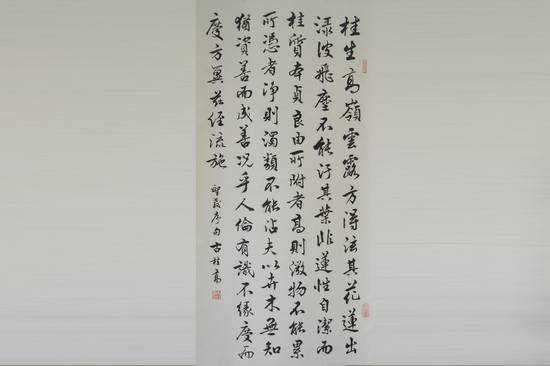 桂生高嶺雲露方得泫其花蓮出
淥波飛塵不能汙其葉非蓮性自潔而
桂質本貞良由所附者高則微物不能累
所憑者淨則濁類不能沾夫以卉木無知
猶資善而成善況乎人倫有識不緣慶而
慶方冀茲經流施
聖教序句